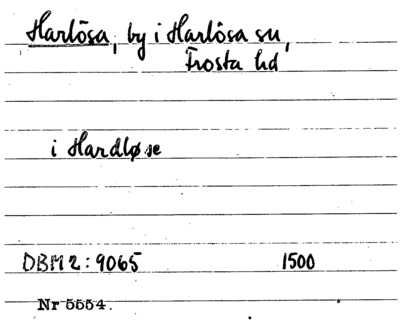 Harlösa, by i Harlösa sn,
Frosta hd
i Hardløse
DBM 2: 9065 1500
Nr 5554.